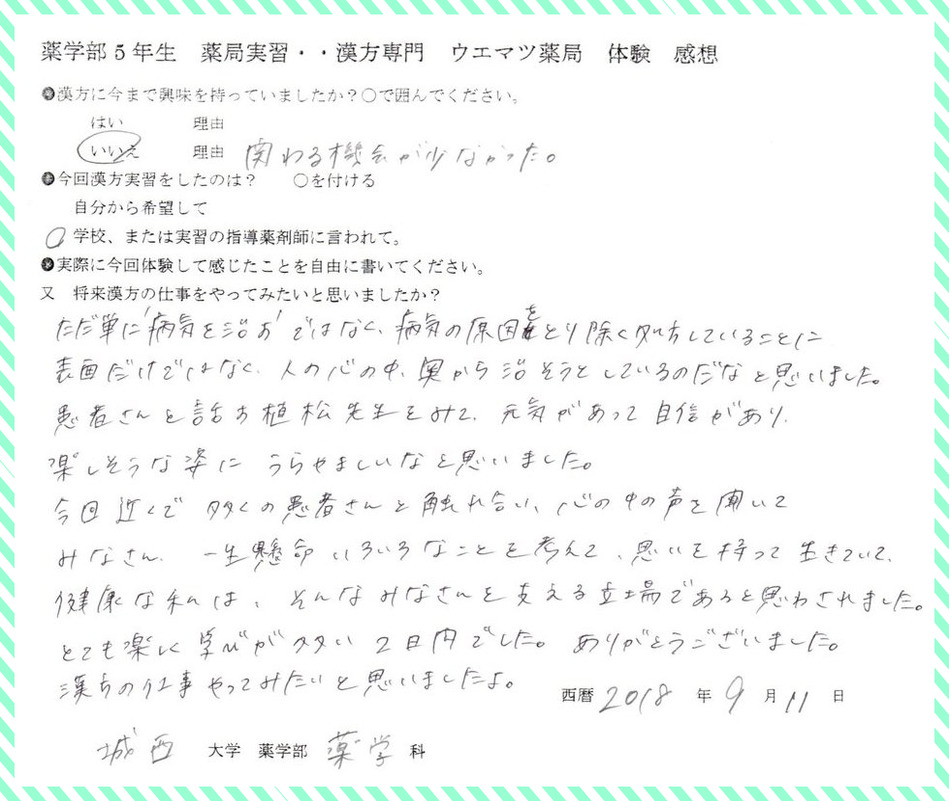 薬学部5年生 薬局実習・・漢方専門 ウエマツ薬局 体験 感想
●漢方に今まで興味を持っていましたか?○で囲んでください。
はい 理由
いいえ 理由 関わる機会が少なかった。
●今回漢方実習をしたのは? ○を付ける
自分から希望して
○ 学校、または実習の指導薬剤師に言われて。
●実際に今回体験して感じたことを自由に書いてください。
又 将来漢方の仕事をやってみたいと思いましたか?
ただ単に"病気を治す"ではなく、病気の原因をとり除く処方していることに
表面だけではなく、人の心の中、奥から治そうとしているのだなと思いました。
患者さんと話す植松先生をみて、元気があって自信があり、
楽しそうな姿に うらやましいなと思いました。
今回近くで 多くの患者さんと触れ合い、心の中の声を聞いて
みなさん、一生懸命いろいろなことを考えて、思いを持って生きていて、
健康な私は、そんなみなさんを支える立場であると思わされました。
とても楽しく学びが多い2日間でした。ありがとうございました。
漢方の仕事やってみたいと思いましたよ。
西暦 2018 年 9 月 11 日
城西 大学 薬学部 薬学 科